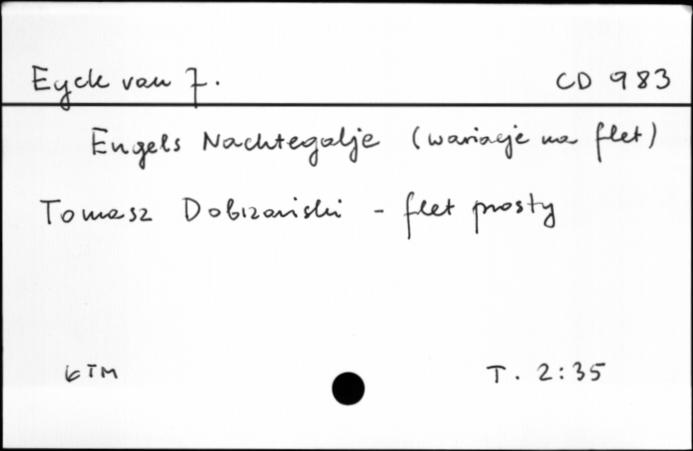 Eyck van J. CD 983
Engels Nachtegalje (wariacje na flet)
Tomasz Dobrzański - flet prosty
LTM T. 2:35